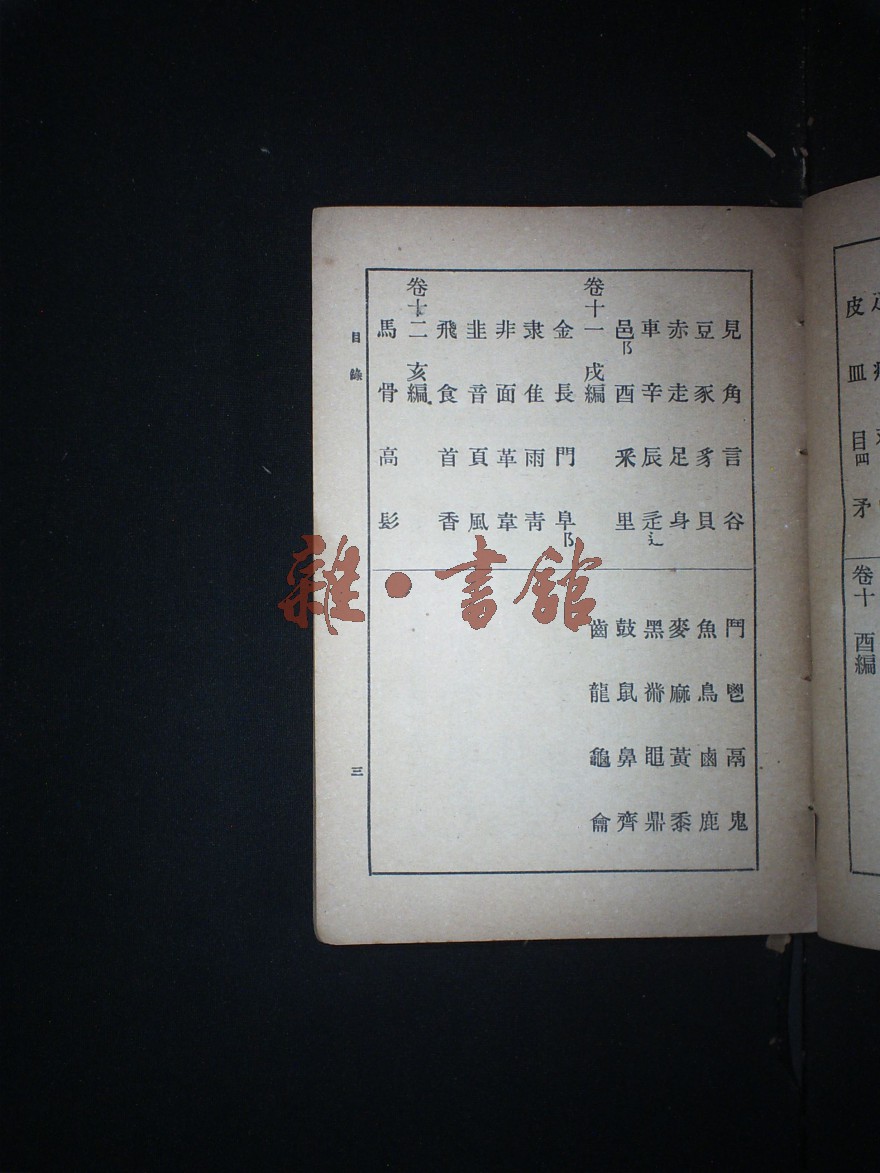 皮 皿 目罒 矛
卷十 酉編
見 角 言 谷
豆 豕 豸 貝
赤 走 足 身
車 辛 辰 辵辶
邑阝 酉 釆 里
卷十一 戌編
金 長 門 阜阝
隶 隹 雨 靑
非 面 革 韋
韭 音 頁 風
飛 食 首 香
卷十二 亥編
馬 骨 高 髟
鬥 鬯 鬲 鬼
魚 鳥 鹵 鹿
麥 麻 黃 黍
黑 黹 黽 鼎
鼓 鼠 鼻 齊
齒 龍 龜 龠
目錄 三
雜·書館